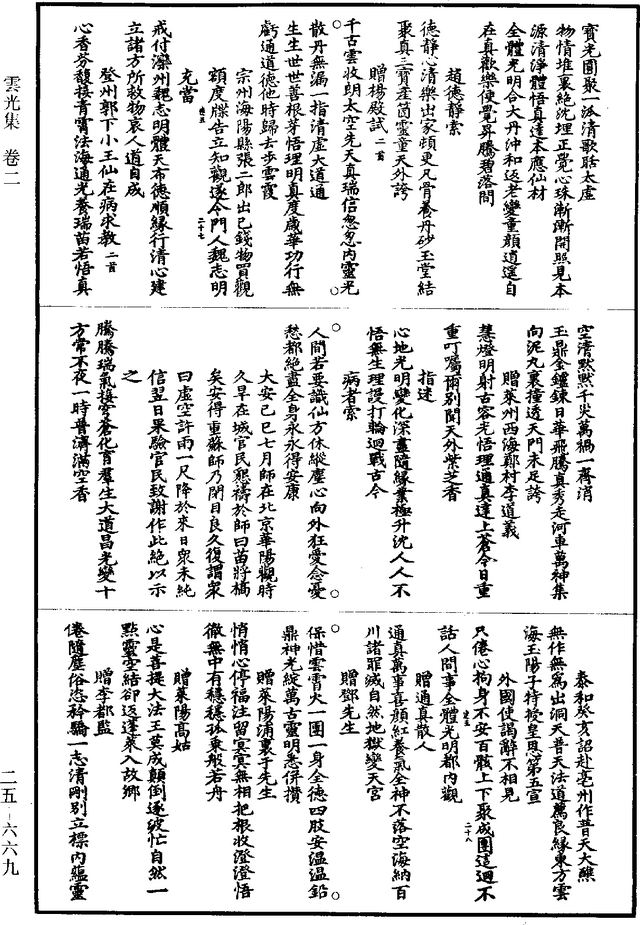 雲光集　卷二
寶光團聚一派清歌聒太虛
物情堆裏絕沈埋正覺心珠漸漸開照見本
源清淨體悟真達本應仙材
全體光明合大丹沖和返老變童顏逍遙自
在真歡樂便覺昇騰碧落間
趙德靜索
德靜心清樂出家頻更凡骨養丹砂玉堂結
聚真三寶產箇靈童天外誇
贈楊殿試二首
千古雲收朗太空先天真瑞信怱怱內靈光
散丹無漏一指清虛大道通
生生世世善根芽悟理明真度歲華功行無
虧通道德他時歸去步雲霞
宗州海陽縣張二郎出己錢物買觀
額度牒告立知觀遂令門人魏志明
二十七
充當
戒付灤州魏志明體天布德順緣行清心建
立諸方所救物哀人道自成
登州郭下小王仙在病求教二首
心香芬馥接青霄法海通光養瑞苗若悟真
空清默默千災萬禍一齊消
玉鼎金鑪鍊日華飛騰真秀走河車萬神集
向泥丸裏撞透天門未足誇
贈萊州西海鄭村李道義
慧燈明射古容光悟理通真達上蒼今日重
重叮囑爾別聞天外紫芝香
指迷
心地光明變化深盡隨緣業極升沈人人不
悟無生理謾打輪迴戰古今
病者索
人間若要識仙方休縱塵心向外狂愛念憂
愁都絕盡全身永永得安康
大安己巳七月師在北京華陽觀時
久旱在城官民懇禱於師曰苗將槁
矣安得重蘇師乃閉目良久復謂眾
曰虛空許雨一尺降於來日眾未純
信翌日果驗官民致謝作此絕以示
之
騰騰瑞氣接穹蒼化育羣生大道昌光變十
方常不夜一時普濟滿空香
泰和癸亥詔赴亳州作普天大醮
無作無為出洞天普天法道萬良緣東方雲
海玉陽子特授皇恩第五宣
外國使謁辭不相見
只倦心拘身不安百骸上下聚成團這迴不
二十八
話人間事全體光明都內觀
贈通真散人
通真萬事喜顏紅養氣全神不落空海納百
川諸罪滅自然地獄變天宮
贈鄧先生
保惜雲雪火一團一身全德四肢安溫溫鉛
鼎神光綻萬古靈明悉併攢
贈萊陽浦裏于先生
悄悄心停福注留冥冥無相把根收澄澄悟
徹無中有穩穩孤乘般若舟
贈萊陽高姑
心是菩提大法王莫成顛倒逐波忙自然一
點靈空結卻返蓬萊入故鄉
贈李都監
倦隨塵俗恣矜驕一志清剛別立標內蘊靈
二五－六六九